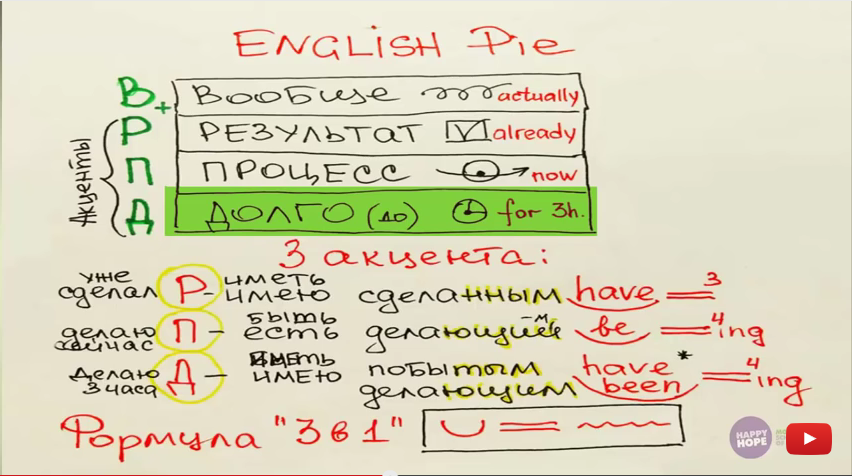 ENGLISH Pie
В + Вообще actually
Р РЕЗУЛЬТАТ V already
П ПРОЦЕСС now
Д ДОЛГО (до) for 3h.
Акценты
3 акцента:
уже сделал Р – иметь имею сделанным have 3
делаю сейчас П – быть есть делающим be 4 ing
Делаю 3 часа Д – иметь имею побытым делающим have been * 4 ing
Формула "3 в 1"
HAPPY HOPE